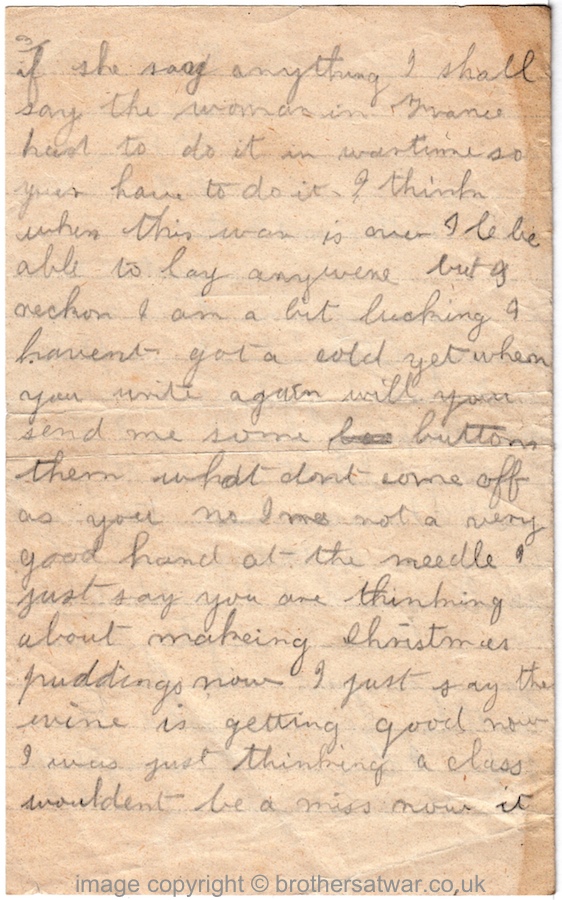 3/
if she say anything I shall
say the woman in France
hast to do it in wartime so
your have to do it I think
when this war is over I le be
able to lay anywere but I
reckon I am a bit lucking I
havent got a cold yet when
you write again will you
send me some buttons
them what dont come off
as you no I me not a very
good hand at the needle I
just say you are thinking
about makeing Christmas
puddings now I just say the
wine is getting good now
I was just thinking a class
wouldent be a miss now it
image copyright © brothersatwar.co.uk